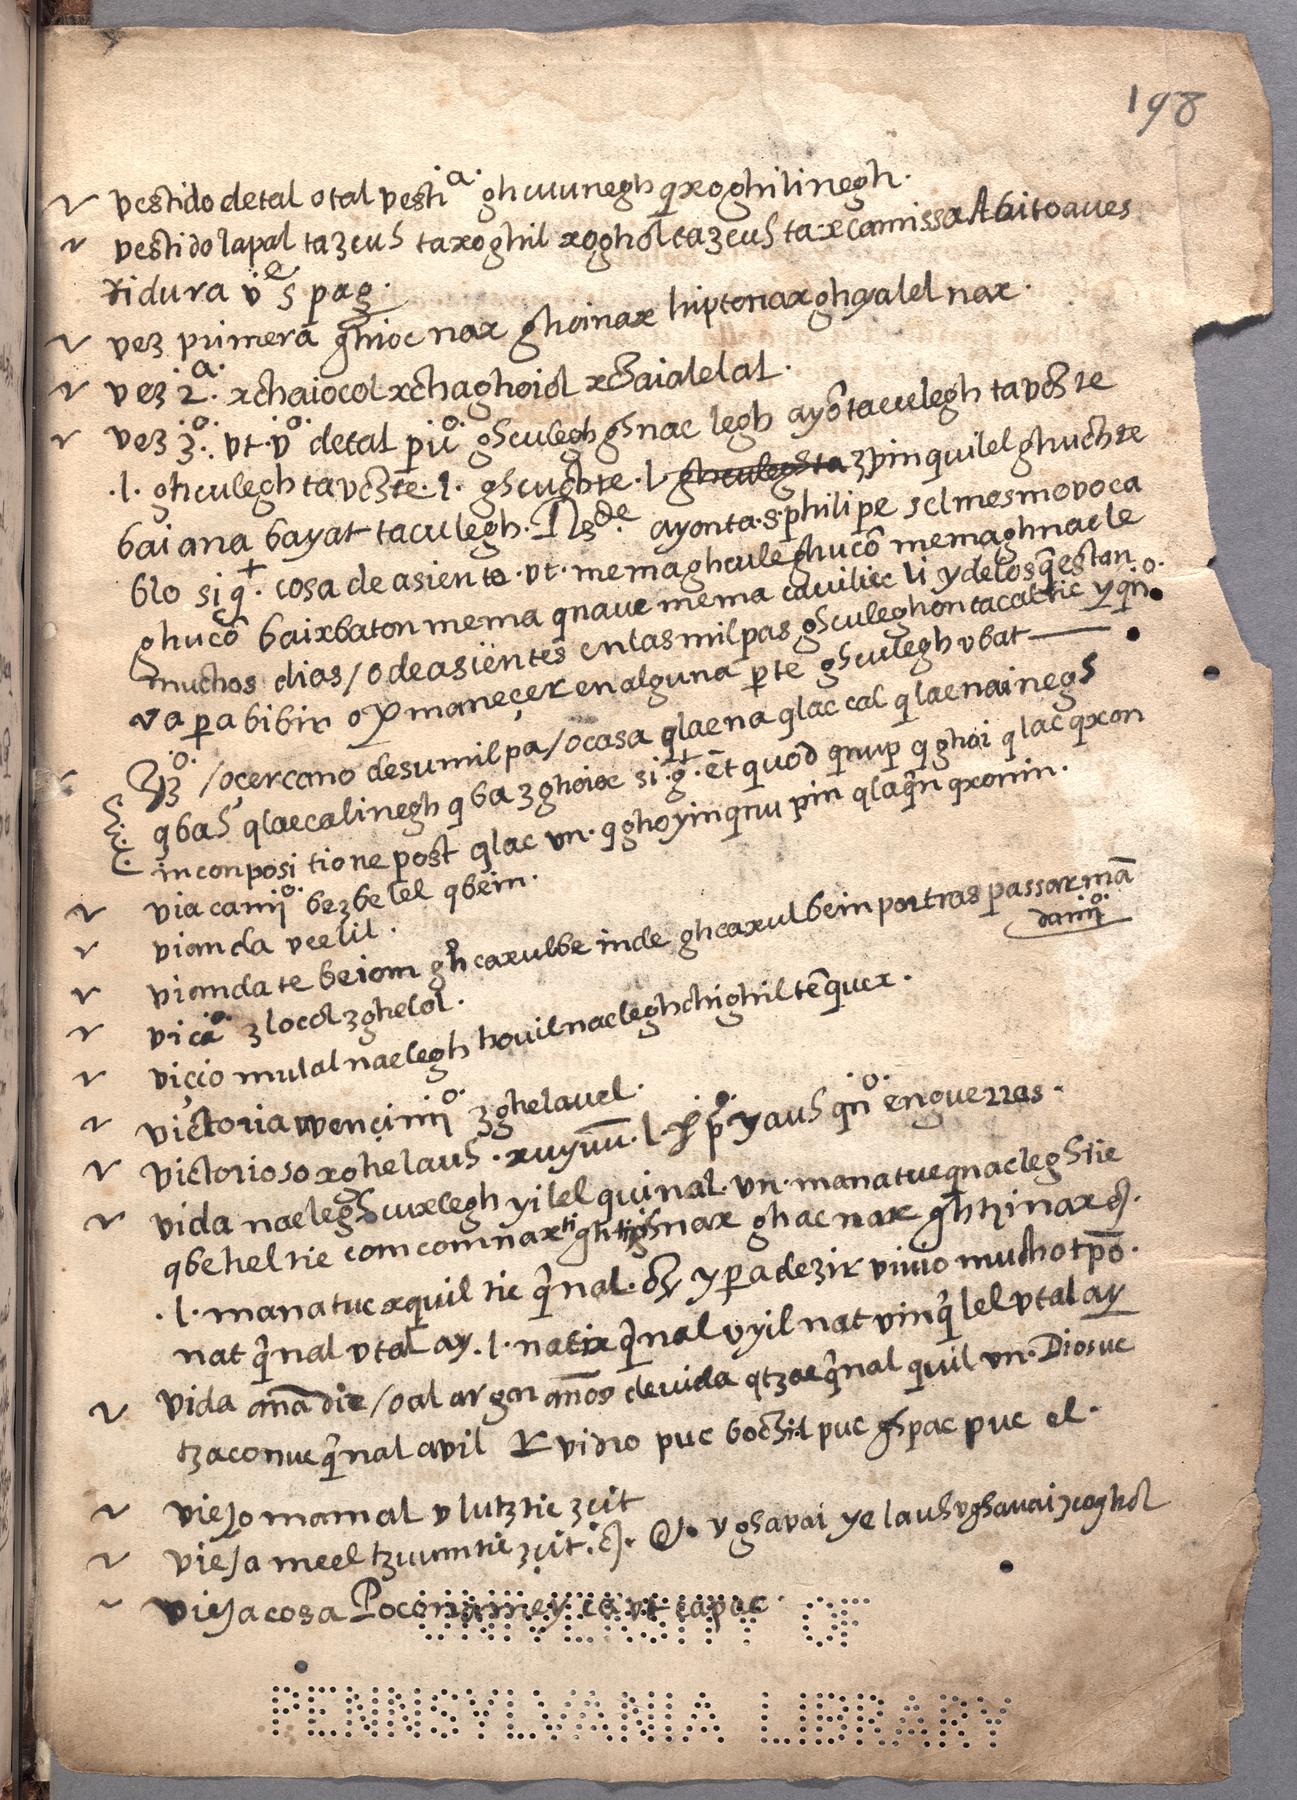 198
vestido de tal o tal vesti.a ghuuunegh qxoghilinegh.
vestido lapal tazcuh taxoghil xoghol tazcuh ta.x camissa Abito aves
tidura ve s pag.
vez primera ghioc nax ghoinax hiptonax ghayalel nax.
vez 2.a xchaiocol xchaghoiol xchaialelal.
vez 3.o vt. vo detal piuo ghculegh ghnac legh ayōtaculegh tavchte
.l. ghculegh tavchte .l. ghcuchte .l. zpinquilel ghuchte
bai ana bayat taculegh. ayonta. s. philipe sel mesmo voca
blo sig. cosa de asiento. vt. memaghculeghucō memaghnacle
ghucō baixbaton mema qnaue mema cauiliec li y delos q̄ estan
muchos dias / o de asiēntes en las milpas ghculeghontacaltic y qn.o
va pa bibir o pmaneçer en alguna pte ghculegh vbat
/o cercano de su milpa / o casa qlaena qlac cal qlaenainegh
qbah qlaecalinegh qba zghoioc sig. et quod qnup q ghoi qlac qxon
in conpositione post qlac vn. q ghoyin qnupin qlaqn qxonin.
via camo bezbelel qbein.
vianda veelil.
vianda te beiom gh caxulbe inde gh caxul bein por tras passar mā
damo
vica zlocol zghelol.
viçio mulal naelegh houil naclegh chighil tēquex.
victoria vencimo zghelauel.
victorioso xghelauh. xuyuū. l. yauh qno en guerras.
vida naelegh cuxlegh yilel quinal. vn. mana tue qnaclegh tie
qbehel tie comcomnax ti gh nax ghac nax ghtzinax
.l. mana tue xquil tie qnal. y pa dezir viuio mucho tpō.
nat qnal vtal ay .l. natix qnal vyil nat vinqlel vtal ay
vida añadie / o alargan años de vida qtzae qnal quil vn. Dios ue
tzaconue qnal avil r vidrio puc bochil puc ghpac puc el.
viejo mamal vlutztie zcit
vieja meel tzuumtie zcit. vghavai yelauh vghauai xoghol
vieja cosa Poco namey ca vt capoc
UNIVERSITY OF
PENNSYLVANIA LIBRARY